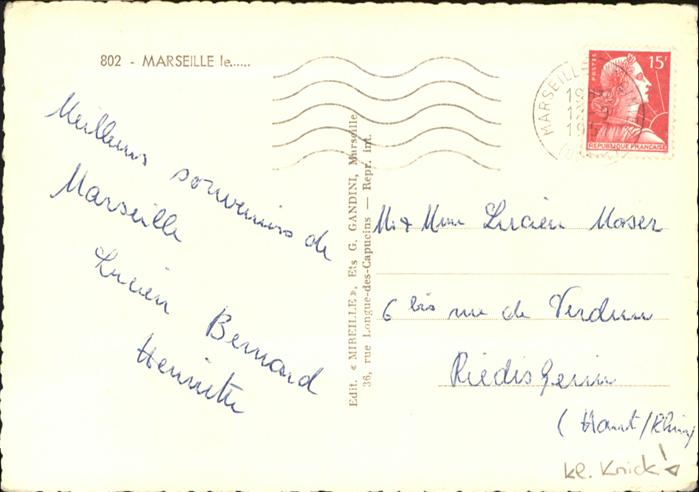 802 - MARSEILLE le......
Meilleurs souvenirs de
Marseille
Lucien Bernard
Henriette
Edit. « MIREILLE », Ets G. GANDINI, Marseille
36, rue Longue-des-Capucins — Repr. int.
MARSEILLE
POSTES
15F
REPUBLIQUE FRANÇAISE
Mr & Mme Lucien Moser
6 bis rue de Verdun
Riedisheim
(Haut/Rhin)
kl. Knick!